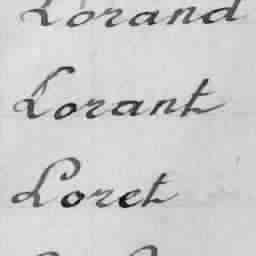 Lorand
Lorant
Loret